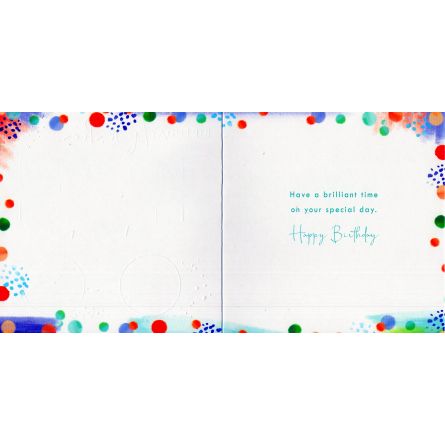 Have a brilliant time
on your special day.
Happy Birthday